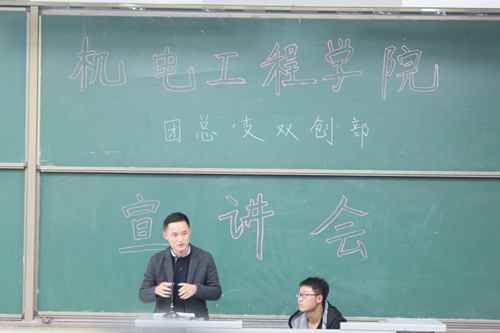 机电工程学院
团总支双创部
宣讲会